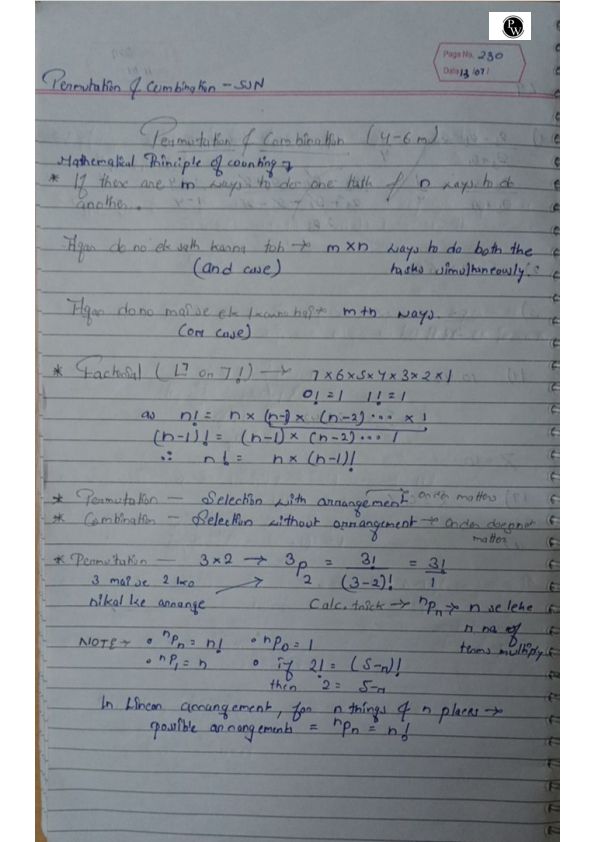 PW
Page No. 230
Date 13/07/
Permutation & Combination – SJN
Permutation & Combination (4-6 m)
Mathematical Principle of counting →
* If there are m ways to do one task & n ways to do
another.
Agar do no ek sath karna toh → m×n ways to do both the
(and case) tasks simultaneously.
Agar do no mai se ek karna hai → m+n ways.
(or case)
* Factorial (L7 or 7!) → 7×6×5×4×3×2×1
0! = 1 1! = 1
as n! = n × (n-1) × (n-2) ... × 1
(n-1)! = (n-1) × (n-2) ... 1
∴ n! = n × (n-1)!
* Permutation — Selection with arrangement → order matters
* Combination — Selection without arrangement → order doesnot
matter
* Permutation — 3×2 → 3P2 = 3!/(3-2)! = 3!/1
3 mai se 2 ko
nikal ke arrange
Calc. trick → nPr → n se leke
r no. of
terms multiply
NOTE → • nPn = n! • nP0 = 1
• nP1 = n • if 2! = (5-n)!
then 2 = 5-n
In Linear arrangement, for n things & n places →
possible arrangements = nPn = n!